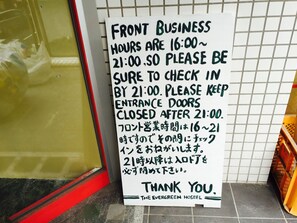 FRONT BUSINESS
HOURS ARE 16:00~
21:00. SO PLEASE BE
SURE TO CHECK IN
BY 21:00. PLEASE KEEP
ENTRANCE DOORS
CLOSED AFTER 21:00.
フロント営業時間は16~21
時ですのでその間にチェック
インをおねがいします。
21時以降は入口ドアを
必ず閉めて下さい。
THANK YOU.
THE EVERGREEN HOSTEL